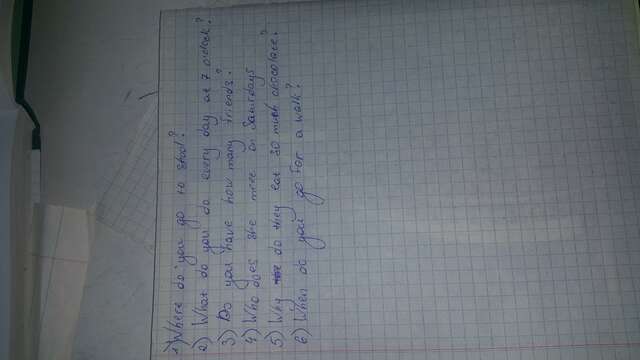 1) Where do you go to shool?
2) What do you do every day at 7 o'clock?
3) Do you have how many friends?
4) Who does she meet on Saturdays?
5) Why do they eat so much chocolate?
6) When do you go for a walk?